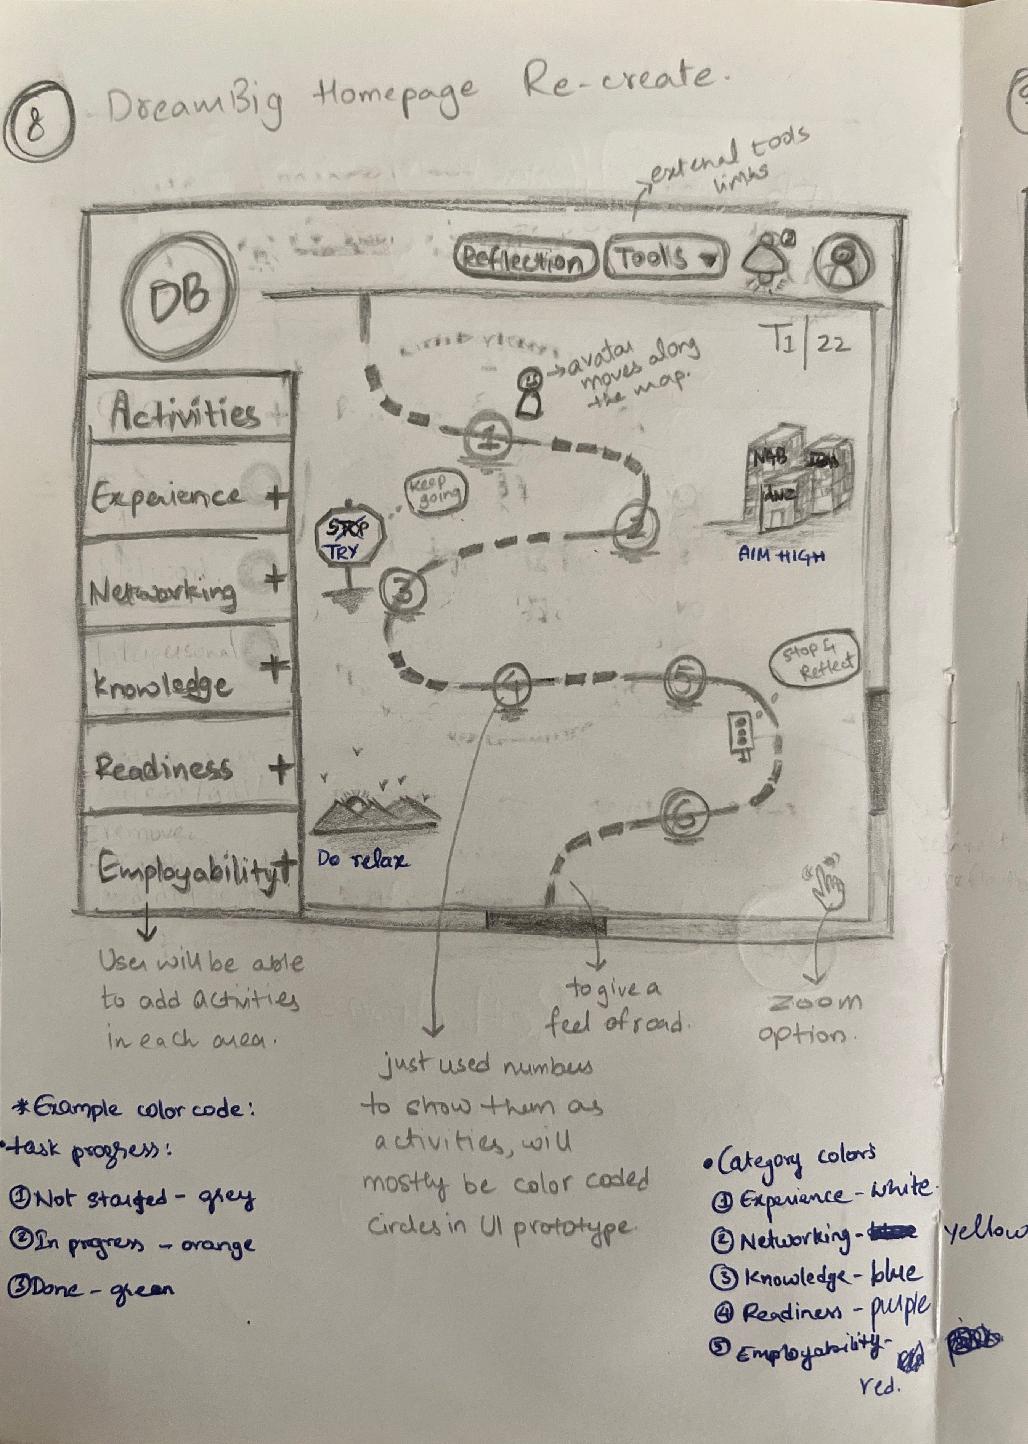 8
DreamBig Homepage Re-create.
external tools
links
DB
Reflection
Tools
2
T1/22
avatar
moves along
the map.
Activities
1
Experience +
keep
going
STOP
TRY
2
NAB
ANZ
AIM HIGH
3
Networking +
Knowledge +
4
5
Stop &
Reflect
Readiness +
6
Employability +
Do relax
User will be able
to add activities
in each area.
to give a
feel of road.
Zoom
option.
just used numbers
to show them as
activities, will
mostly be color coded
circles in UI prototype.
*Example color code:
•task progress:
① Not started - grey
② In progress - orange
③ Done - green
•Category colors
① Experience - white.
② Networking - yellow
③ Knowledge - blue
④ Readiness - purple
⑤ Employability -
red.